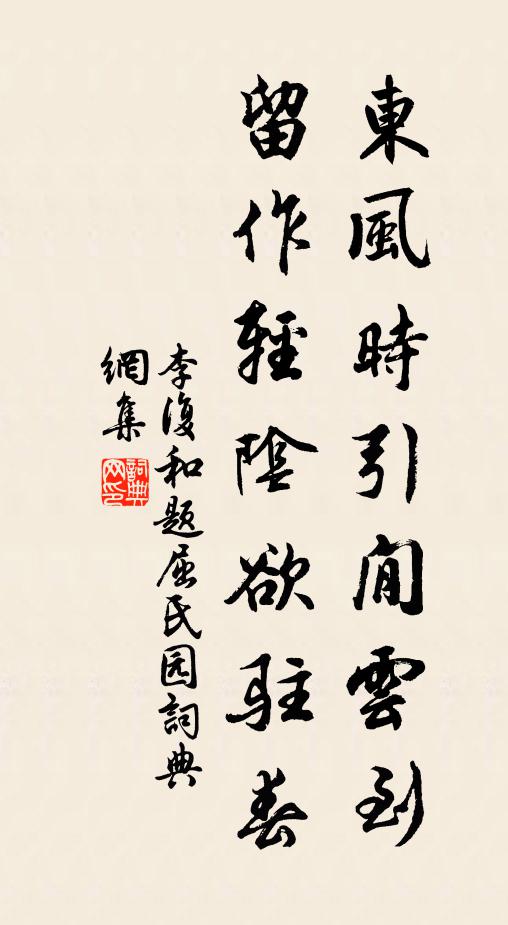 東風時引閒雲到
留作輕陰欲駐春
李復和題屈氏园詞典
網集
詞典
网印